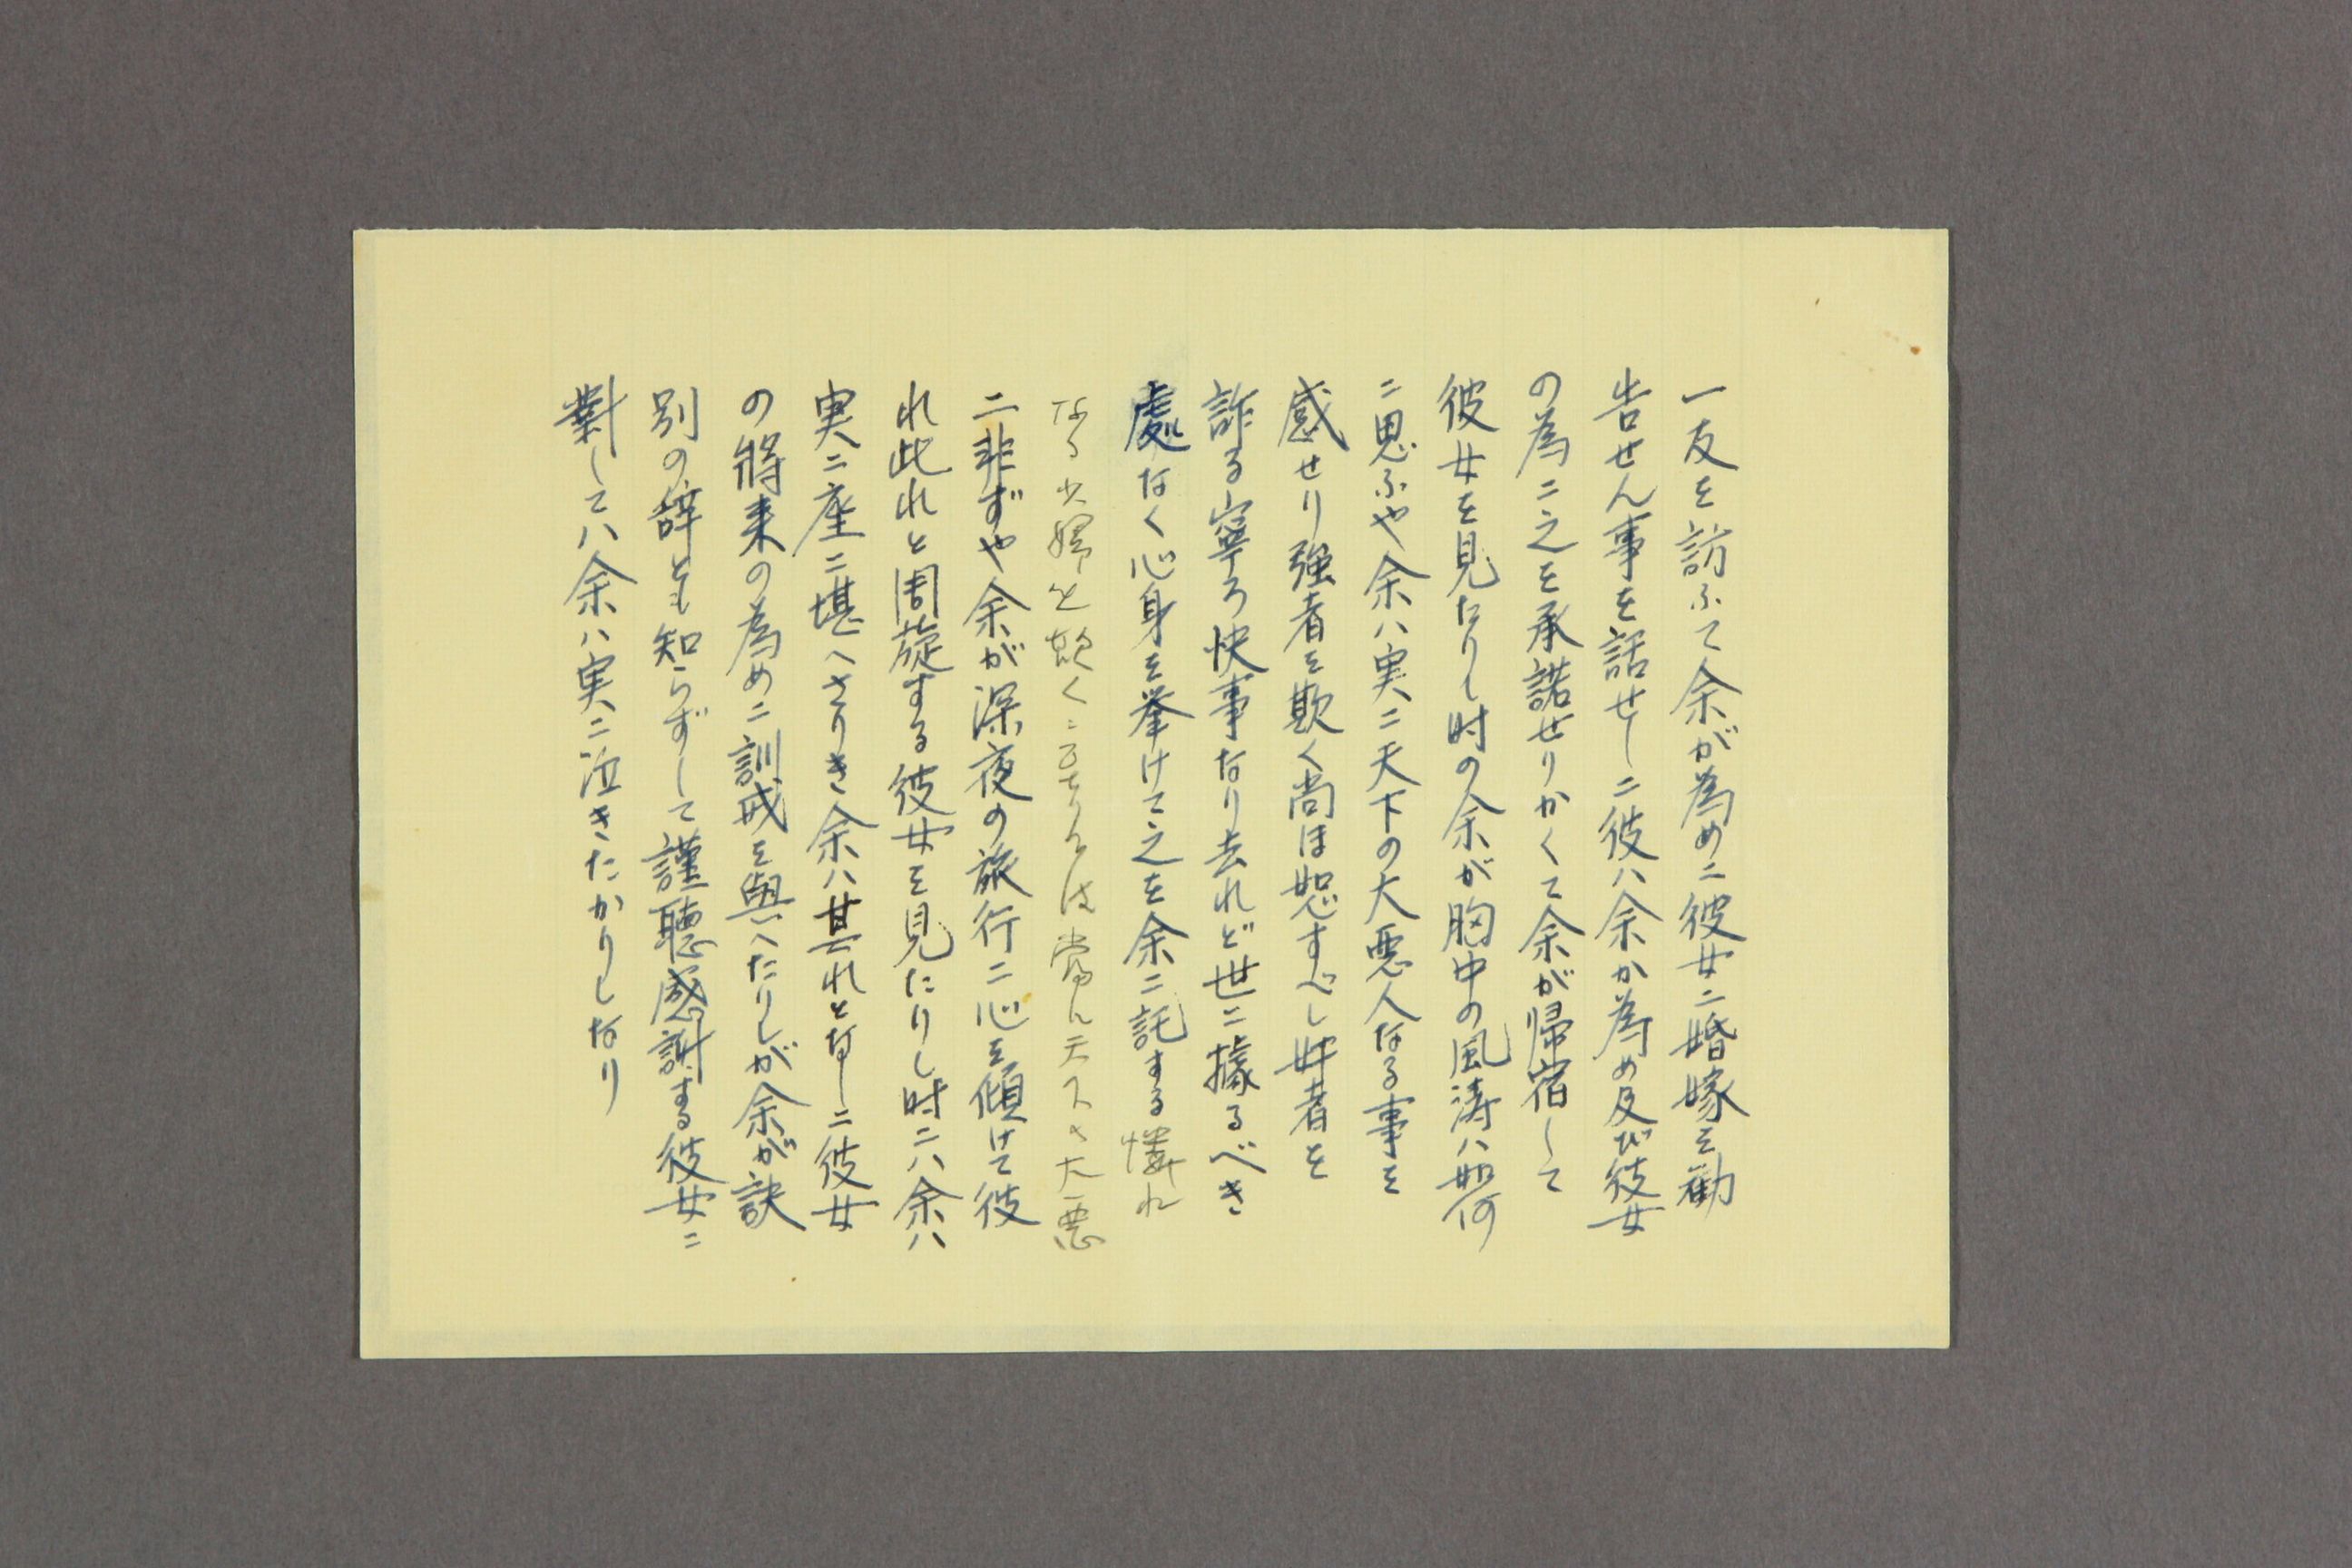 一友を訪ふて余が為め二彼女二婚嫁を勧
告せん事を話せし二彼ハ余か為め及び彼女
の為二之を承諾せりかくて余が帰宿して
彼女を見たりし时の余が胸中の風涛ハ如何
二思ふや余ハ実二天下の大悪人なる事を
感せり強者を欺く尚ほ恕すべし奸者を
詐る寧ろ快事なり去れど世二據るべき
處なく心身を挙けて之を余二託する憐れ
なる少婦を欺く二至りては天下の大悪
二非ずや余が深夜の旅行二心を傾けて彼
れ此れと周旋する彼女を見たりし时二ハ余ハ
実二座二堪へさりき余ハ其れとなし二彼女
の將来の為め二訓戒を與へたりしが余が訣
別の辞とも知らずして謹聴感謝する彼女二
對してハ余ハ実二泣きたかりしなり